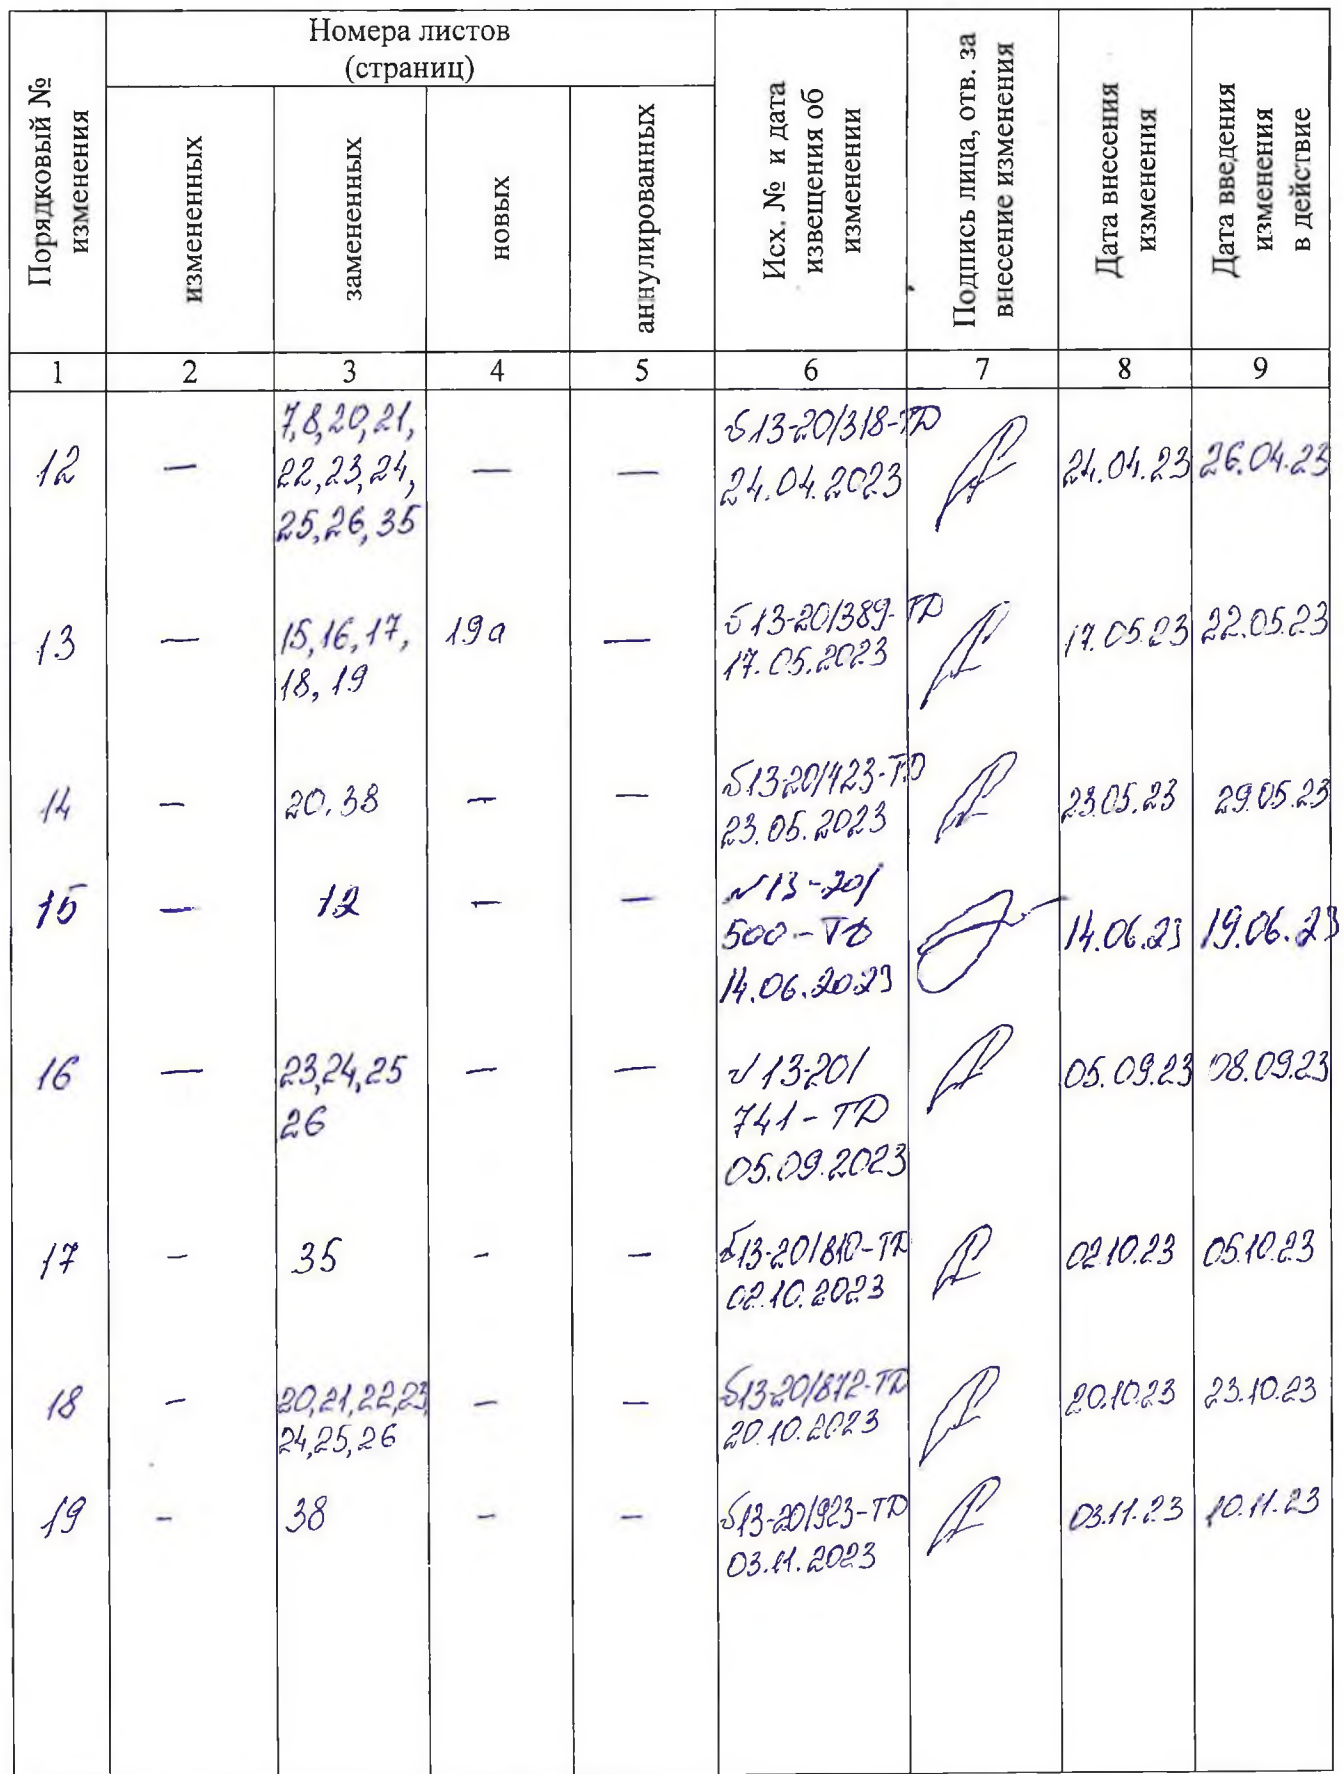 Порядковый №
изменения
Номера листов
(страниц)
измененных
замененных
новых
аннулированных
Исх. № и дата
извещения об
изменении
Подпись лица, отв. за
внесение изменения
Дата внесения
изменения
Дата введения
изменения
в действие
1 2 3 4 5 6 7 8 9
12 — 7,8,20,21,
22,23,24,
25,26,35
— — 13-20/318-ТД
24.04.2023
24.04.23 26.04.23
13 — 15,16,17,
18,19
19а — 13-20/389-ТД
17.05.2023
17.05.23 22.05.23
14 — 20.38 — — 13-20/423-ТД
23.05.2023
23.05.23 29.05.23
15 — 12 — — 13-20/
500-ТД
14.06.2023
14.06.23 19.06.23
16 — 23,24,25
26
— — 13-20/
741-ТД
05.09.2023
05.09.23 08.09.23
17 — 35 — — 13-20/810-ТД
02.10.2023
02.10.23 05.10.23
18 — 20,21,22,23,
24,25,26
— — 13-20/872-ТД
20.10.2023
20.10.23 23.10.23
19 — 38 — — 13-20/923-ТД
03.11.2023
03.11.23 10.11.23